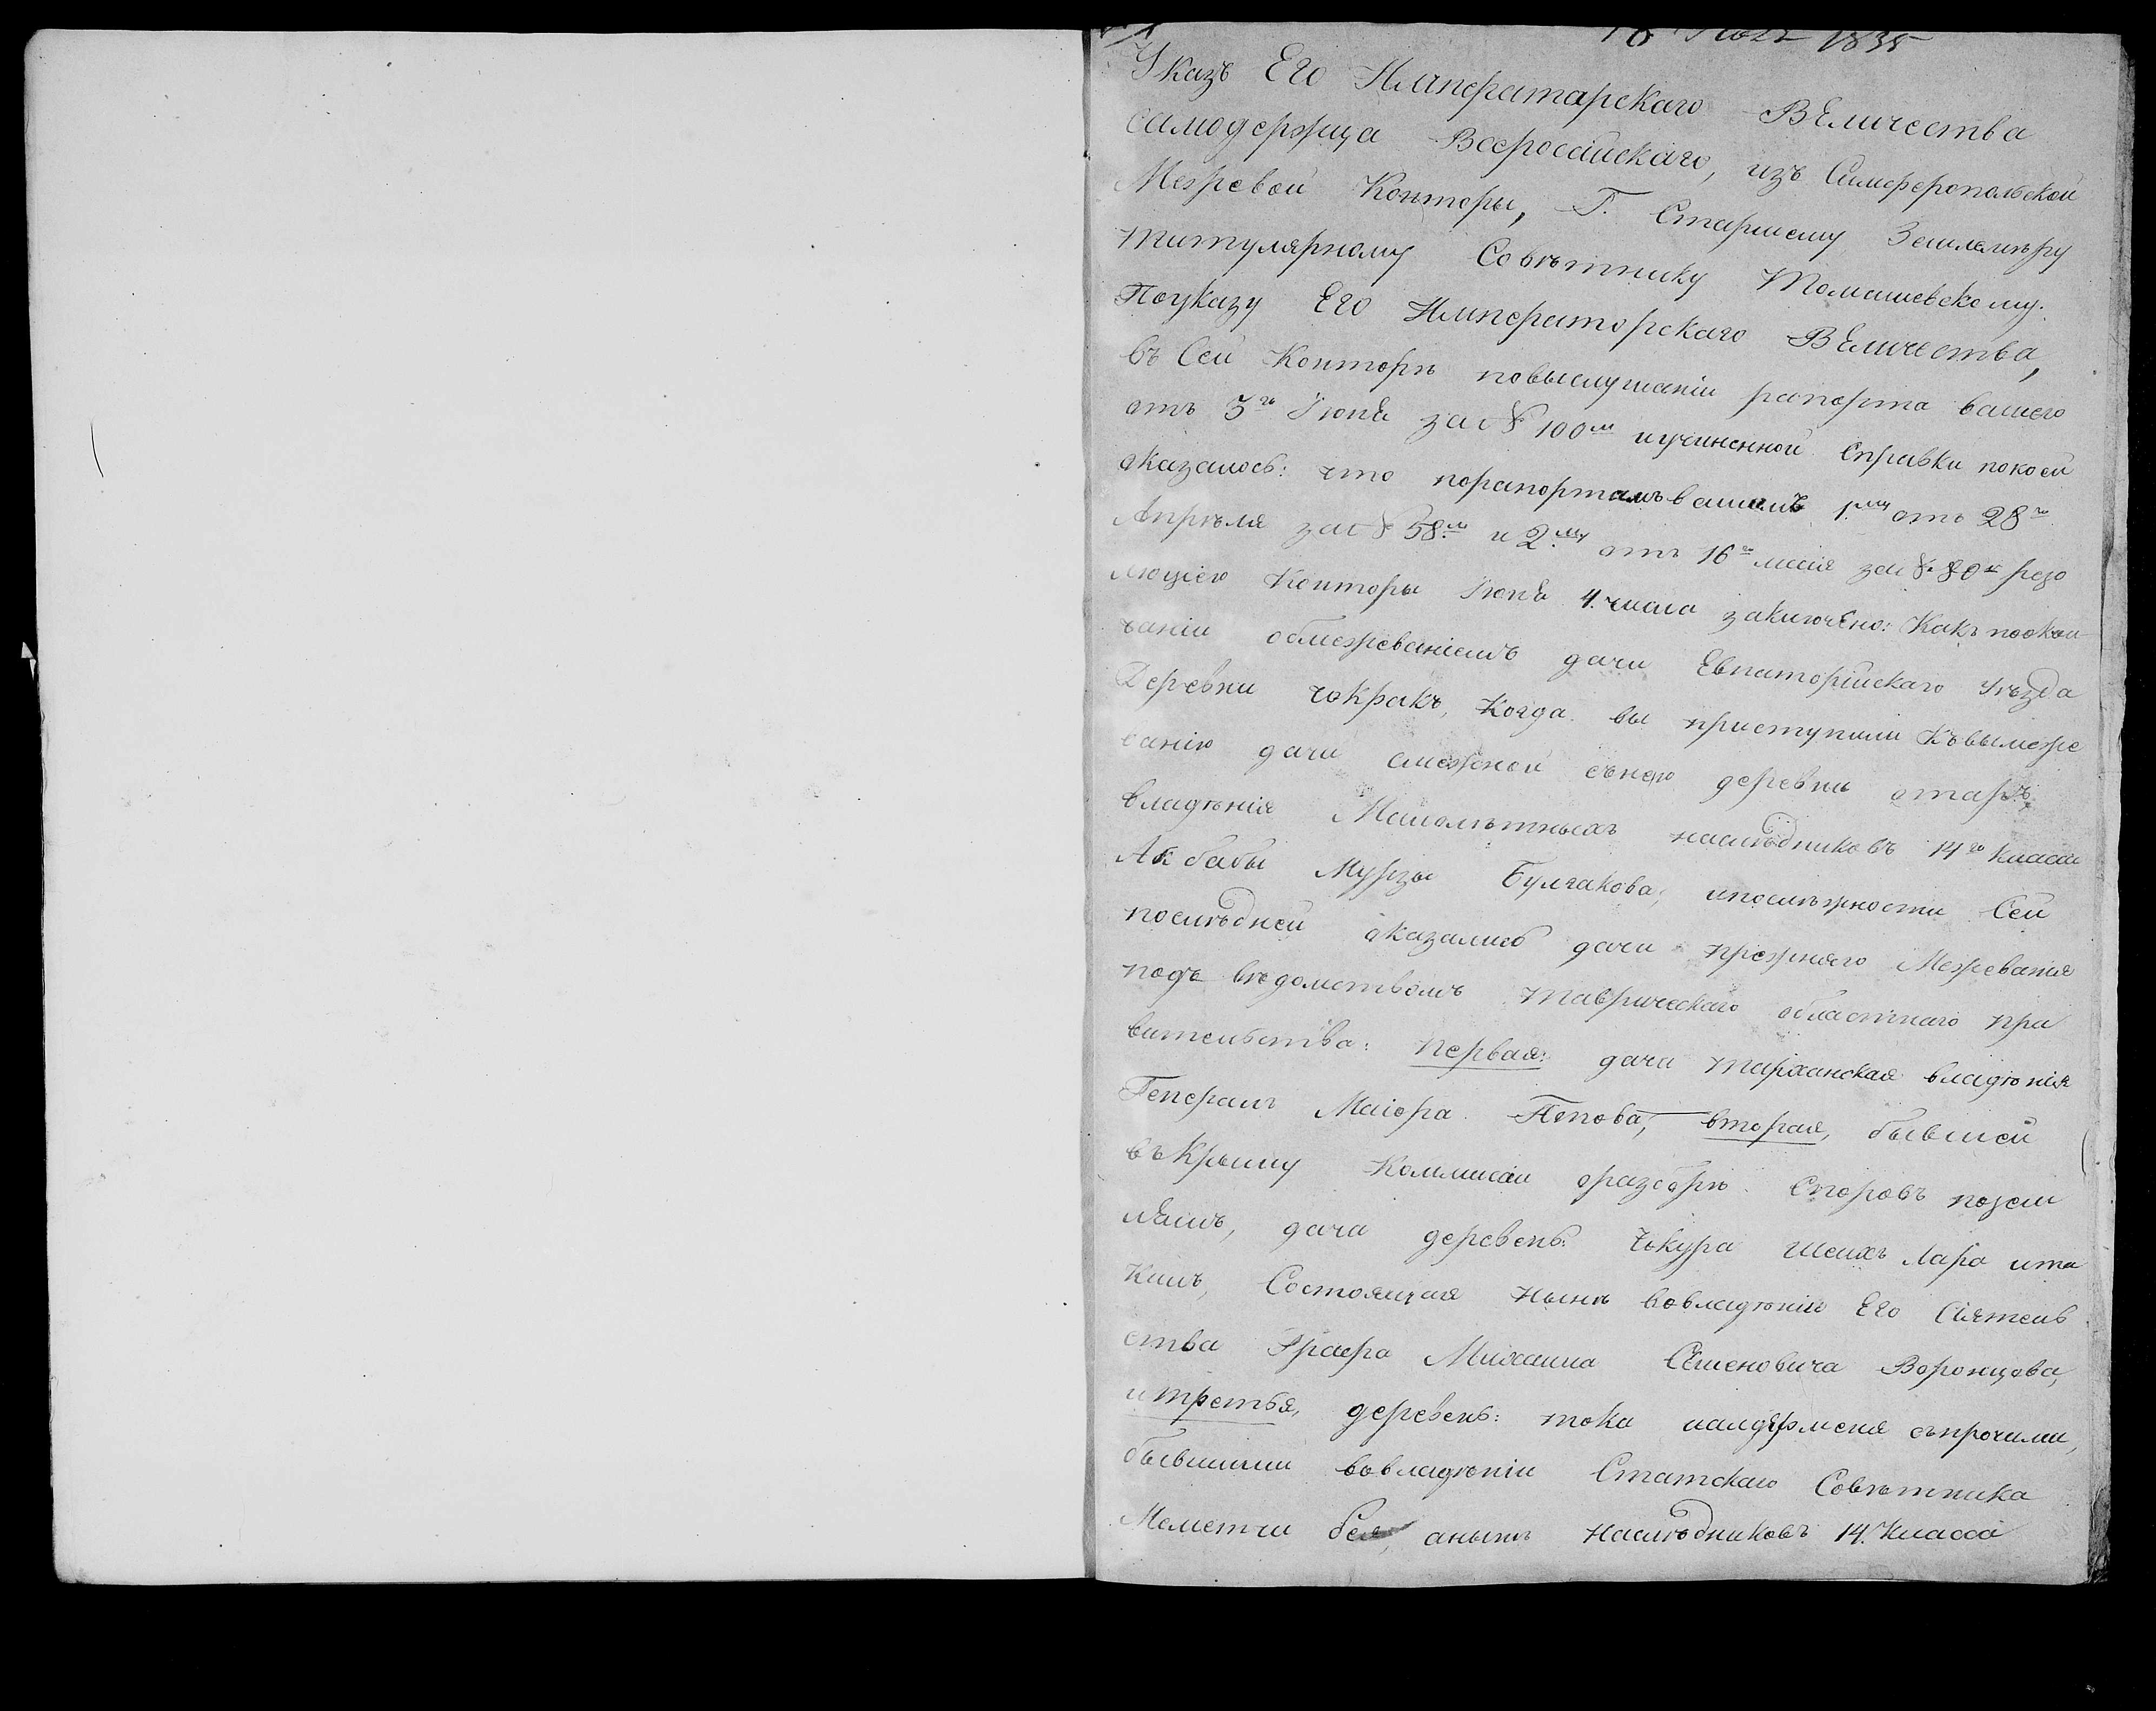 1835
Указъ Его Императорскаго Величества
самодержца Всеросійскаго, изъ Симферопольской
Межевой Конторы, Г. Старшему Землемѣру
титулярному Совѣтнику Томашевскому.
Поуказу Его Императорскаго Величества,
въ Сей Конторѣ повыслушаніи рапорта вашего
отъ 3го Іюня за № 100м иучиненной Справки покоей
оказалось: что порапортамъ вашимъ 1.му отъ 28го
Апрѣля за № 58.м и 2.му отъ 16го маія за № 80м резо
люціею Конторы Іюня 4. числа заключено: Какъ поокон
чаніи обмежеваніемъ дачи Евпаторійскаго Уѣзда
Деревни Чокракъ, Когда вы приступили Къвымеже
ванію дачи смежной сънею деревни отаръ,
владѣнія Малолѣтныхъ наслѣдниковъ 14го Класса
Ак бабы Мурзы Булгакова, ипосмѣжности Сей
послѣдней оказались дачи прежняго Межеванія
подъ вѣдомствомъ таврическаго областнаго пра
вительства: первая: дача тарханская владѣнія
Генералъ Маіора Попова, вторая, бывшей
въКрыму Коммисіи оразборѣ Споровъ позем
лямъ, дача деревень: Чокура шеихъ Лара ита
килъ, Состоящая нынѣ вовладѣніи Его Сіятель
ства Графа Михаила Семеновича Воронцова,
итретья, деревень: тока съпрочими,
бывшими вовладѣніи Статскаго Совѣтника
Меметши бея, анынѣ наслѣдниковъ 14. Класса